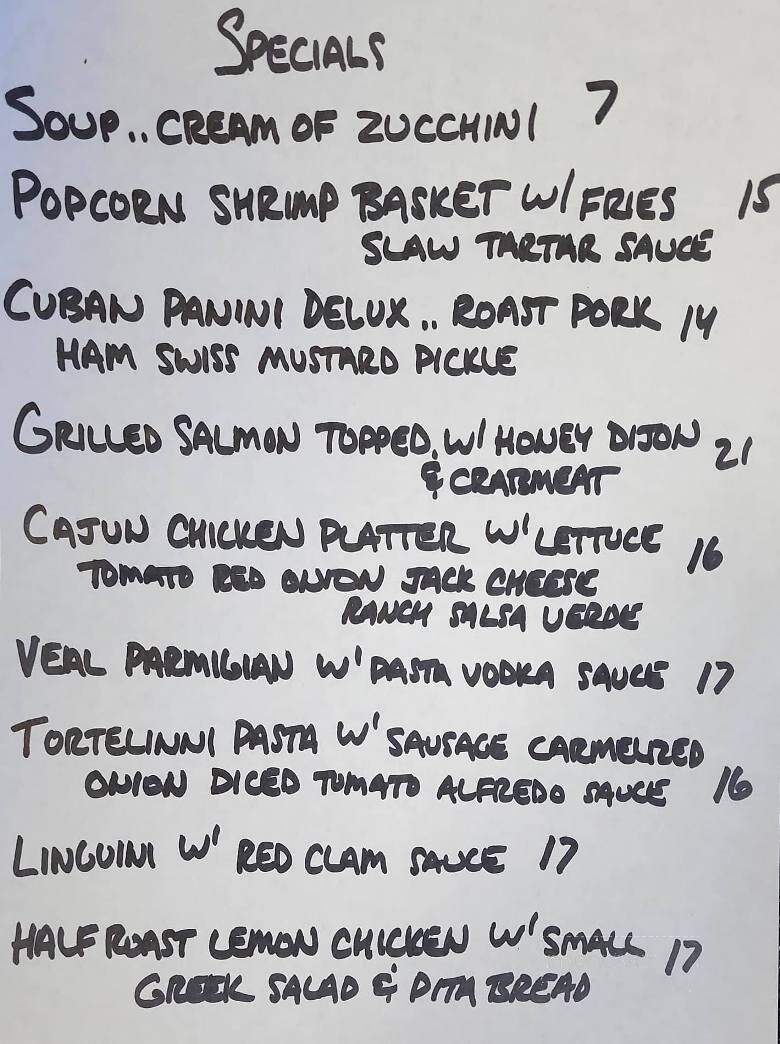 SPECIALS
SOUP.. CREAM OF ZUCCHINI 7
POPCORN SHRIMP BASKET W/ FRIES 15
SLAW TARTAR SAUCE
CUBAN PANINI DELUX.. ROAST PORK 14
HAM SWISS MUSTARD PICKLE
GRILLED SALMON TOPPED W/ HONEY DIJON 21
& CRABMEAT
CAJUN CHICKEN PLATTER W' LETTUCE 16
TOMATO RED ONION JACK CHEESE
RANCH SALSA VERDE
VEAL PARMIGIAN W' PASTA VODKA SAUCE 17
TORTELINNI PASTA W' SAUSAGE CARMELIZED
ONION DICED TOMATO ALFREDO SAUCE 16
LINGUINI W' RED CLAM SAUCE 17
HALF ROAST LEMON CHICKEN W' SMALL 17
GREEK SALAD & PITA BREAD